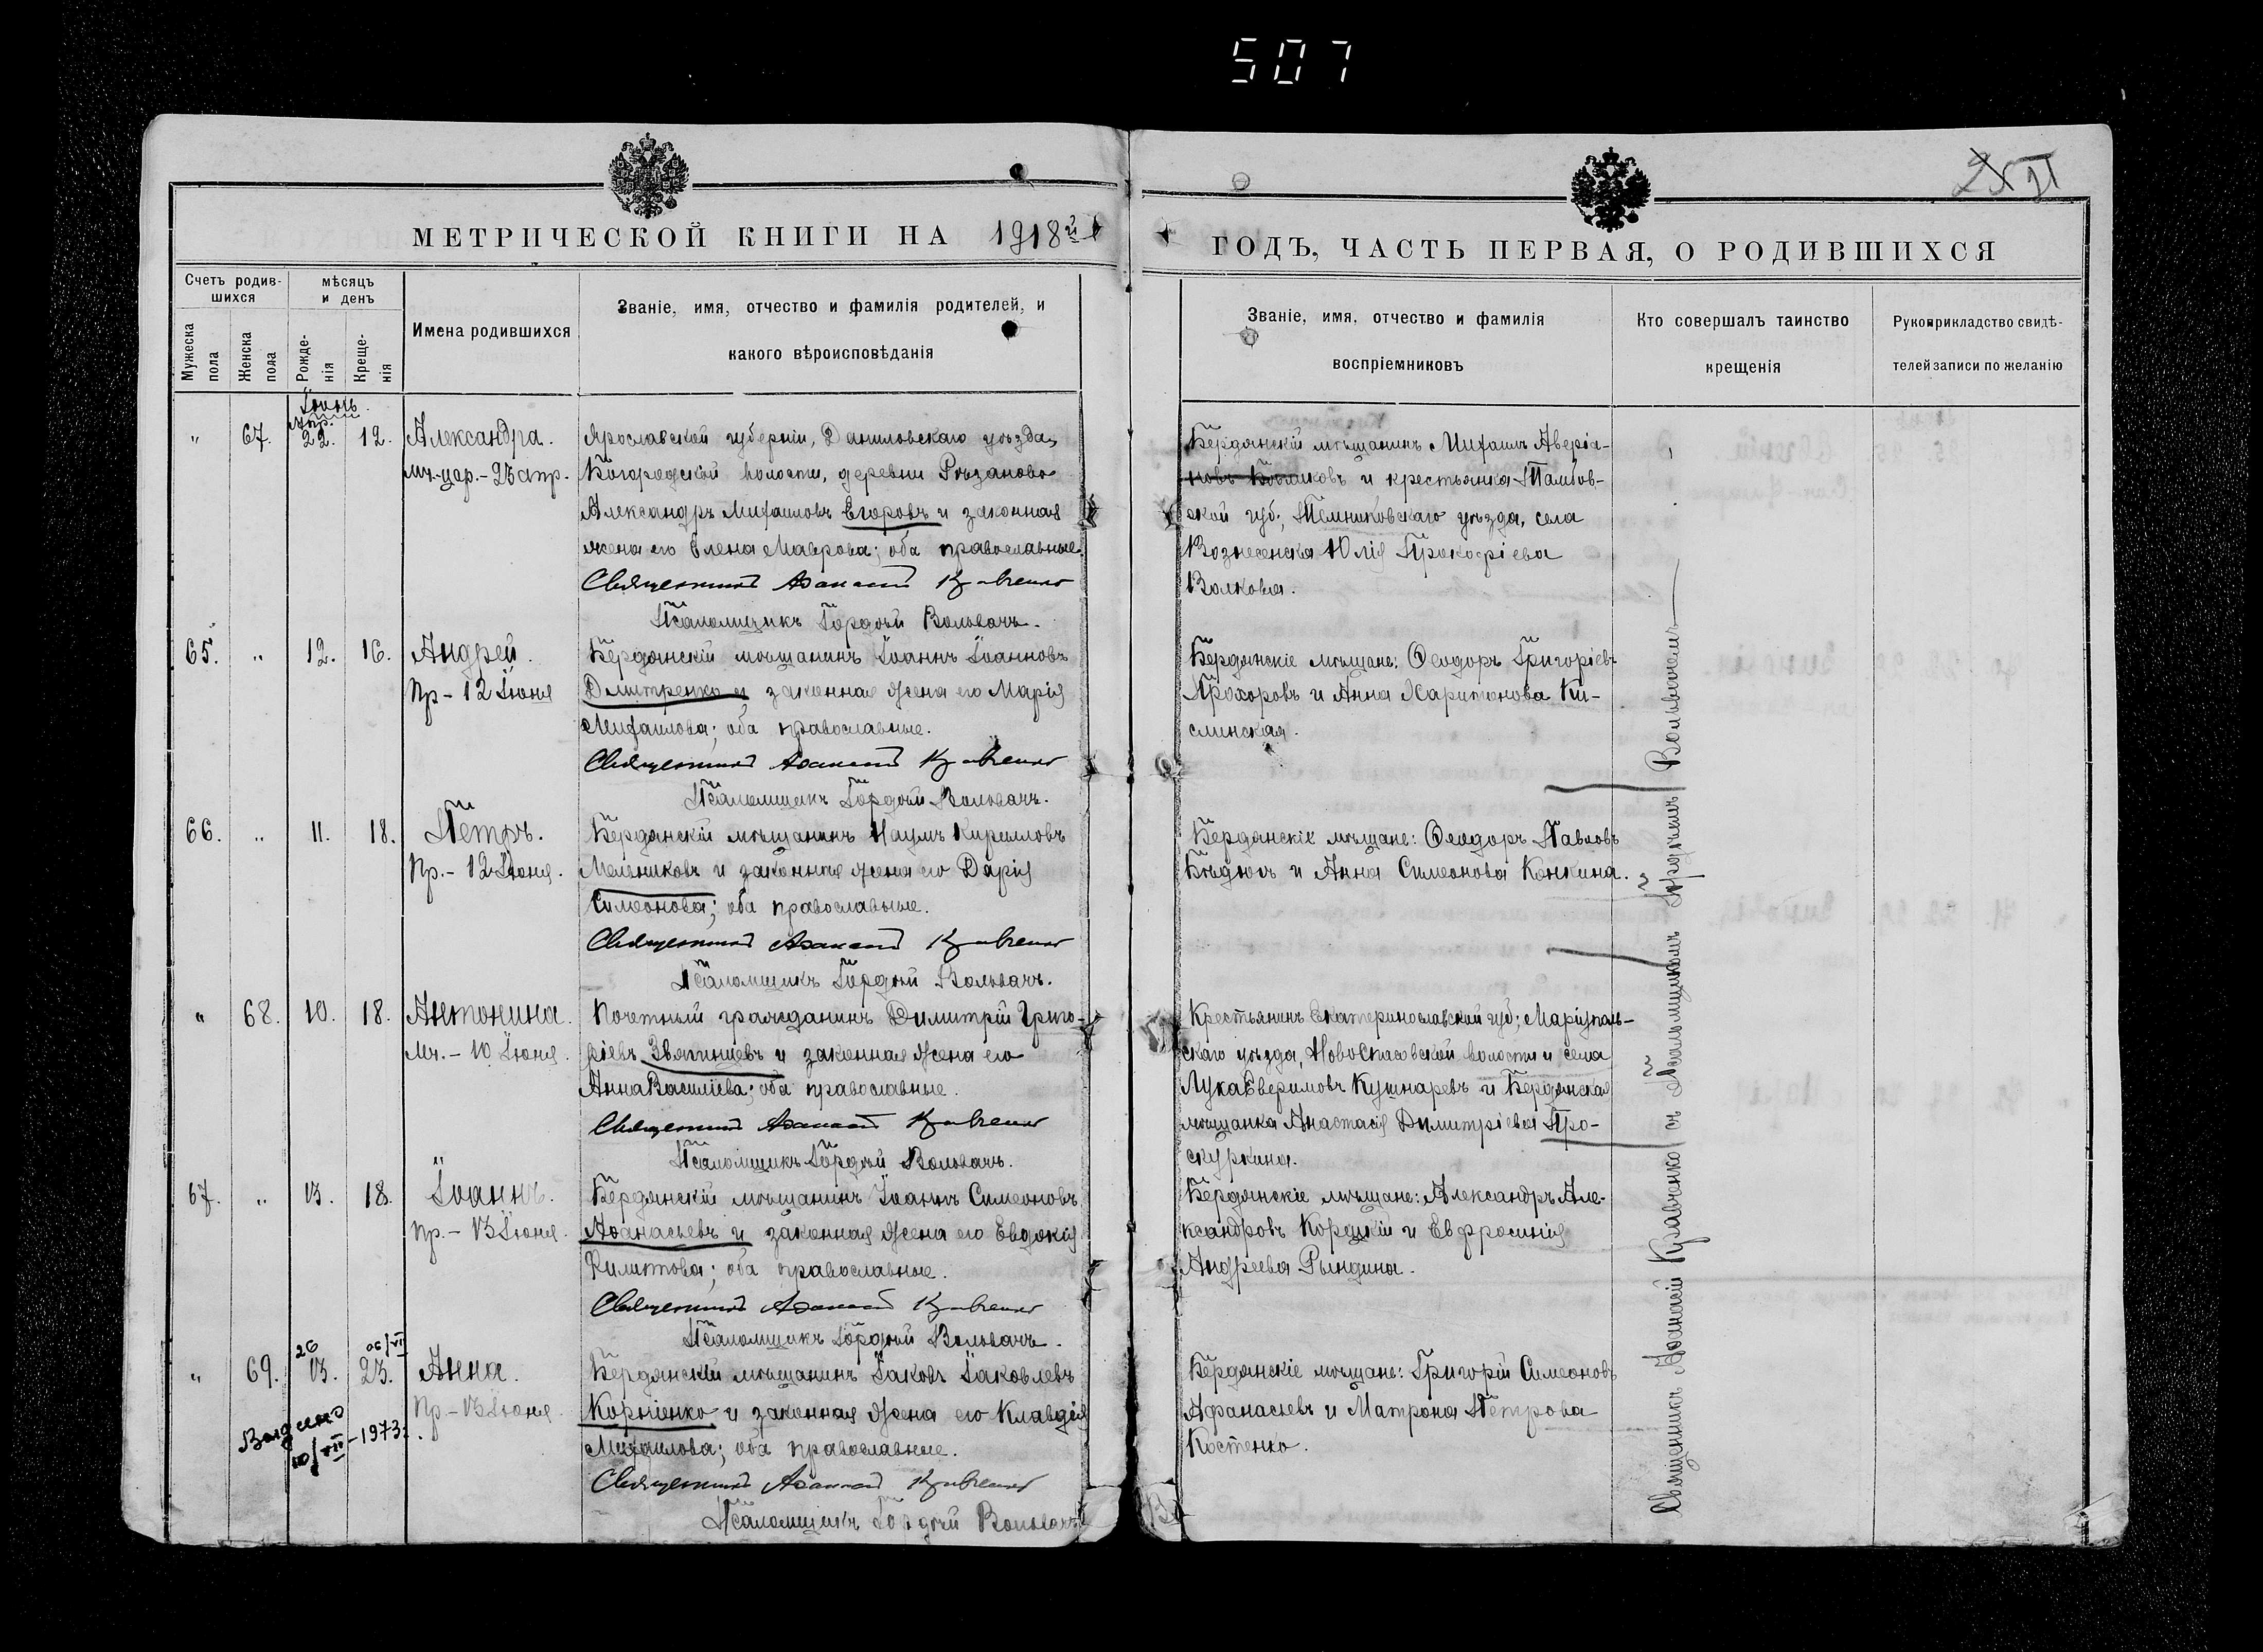 507
МЕТРИЧЕСКОЙ КНИГИ НА 1918й
Счетъ родив-
шихся
мѣсяцъ
и день
Мужеска
пола
Женска
пола
Рожде-
нія
Креще-
нія
Имена родившихся
Званіе, имя, отчество и фамилія родителей, и
какого вѣроисповѣданія
Іюнь.
Апр.
" 67. 22. 12. Александра. Ярославской губерніи, Даниловскаго уѣзда,
мч. цар. - 23 апр. Богородской волости, деревни Рѣзаново
Александръ Михаиловъ Егоровъ и законная
жена его Елена Маврова; оба православные.
Священникъ Аѳанасій Кравченко
Псаломщикъ Гордѣй Вольвачъ.
65. " 12. 16. Андрей. Бердянскій мѣщанинъ Іоаннъ Іоанновъ
Пр - 12 Іюня Дмитренко и законная жена его Марія
Михаилова; оба православные.
Священникъ Аѳанасій Кравченко
Псаломщикъ Гордѣй Вольвачъ.
66. " 11. 18. Петръ. Бердянскій мѣщанинъ Наумъ Кирилловъ
Пр. - 12 Іюня. Мельниковъ и законная жена его Дарія
Симеонова; оба православные.
Священникъ Аѳанасій Кравченко
Псаломщикъ Гордѣй Вольвачъ.
" 68. 10. 18. Антонина. Почетный гражданинъ Димитрій Григо-
Мч. - 10 Іюня. ріевъ Звягинцевъ и законная жена его
Анна Василіева; оба православные.
Священникъ Аѳанасій Кравченко
Псаломщикъ Гордѣй Вольвачъ.
67. " 13. 18. Іоаннъ. Бердянскій мѣщанинъ Іоаннъ Симеоновъ
Пр. - 13 Іюня. Аѳанасьевъ и законная жена его Евдокія
Филиппова; оба православные.
Священникъ Аѳанасій Кравченко
Псаломщикъ Гордѣй Вольвачъ.
26 06/VII
" 69. 13. 23. Анна. Бердянскій мѣщанинъ Іаковъ Іаковлевъ
Пр - 13 Іюня. Корніенко и законная жена его Клавдія
Выдано
10/VII - 1973г.
Михаилова; оба православные.
Священникъ Аѳанасій Кравченко
Псаломщикъ Гордѣй Вольвачъ
ГОДЪ, ЧАСТЬ ПЕРВАЯ, О РОДИВШИХСЯ
Званіе, имя, отчество и фамилія
воспріемниковъ
Кто совершалъ таинство
крещенія
Рукоприкладство свидѣ-
телей записи по желанію
Бердянскій мѣщанинъ Михаилъ Аверіа-
новъ и крестьянка Тамбов-
ской губ., Темниковскаго уѣзда, села
Вознесенска Юлія Прокофіева
Волкова.
Бердянскіе мѣщане: Ѳеодоръ Григоріевъ
Прохоровъ и Анна Харитонова Ки-
слинская.
Бердянскіе мѣщане: Ѳеодоръ Павловъ
и Анна Симеонова Конкина.
Крестьянинъ Екатеринославской губ; Маріуполь-
скаго уѣзда, Новоспасовской волости и села
Лука Кушнаревъ и Бердянская
мѣщанка Анастасія Димитріева Про-
скурина.
Бердянскіе мѣщане: Александръ Але-
ксандровъ Корецкій и Евфросинія
Андреева Рындина.
Бердянскіе мѣщане: Григорій Симеоновъ
Афанасьевъ и Матрона Петрова
Костенко.
Священникъ Аѳанасій Кравченко съ Псаломщикомъ Гордѣемъ Вольвачемъ